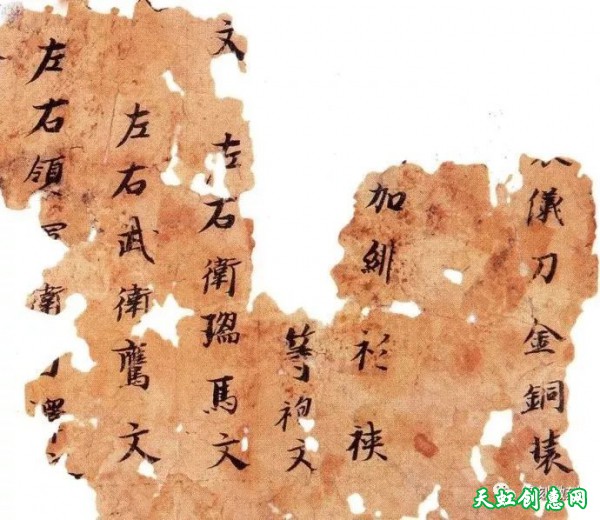 儀刀金銅裝
加緋衫裌
等袍文
文 左右衛瑞馬文
左右武衛鷹文
左右領軍衛
天虹创惠网